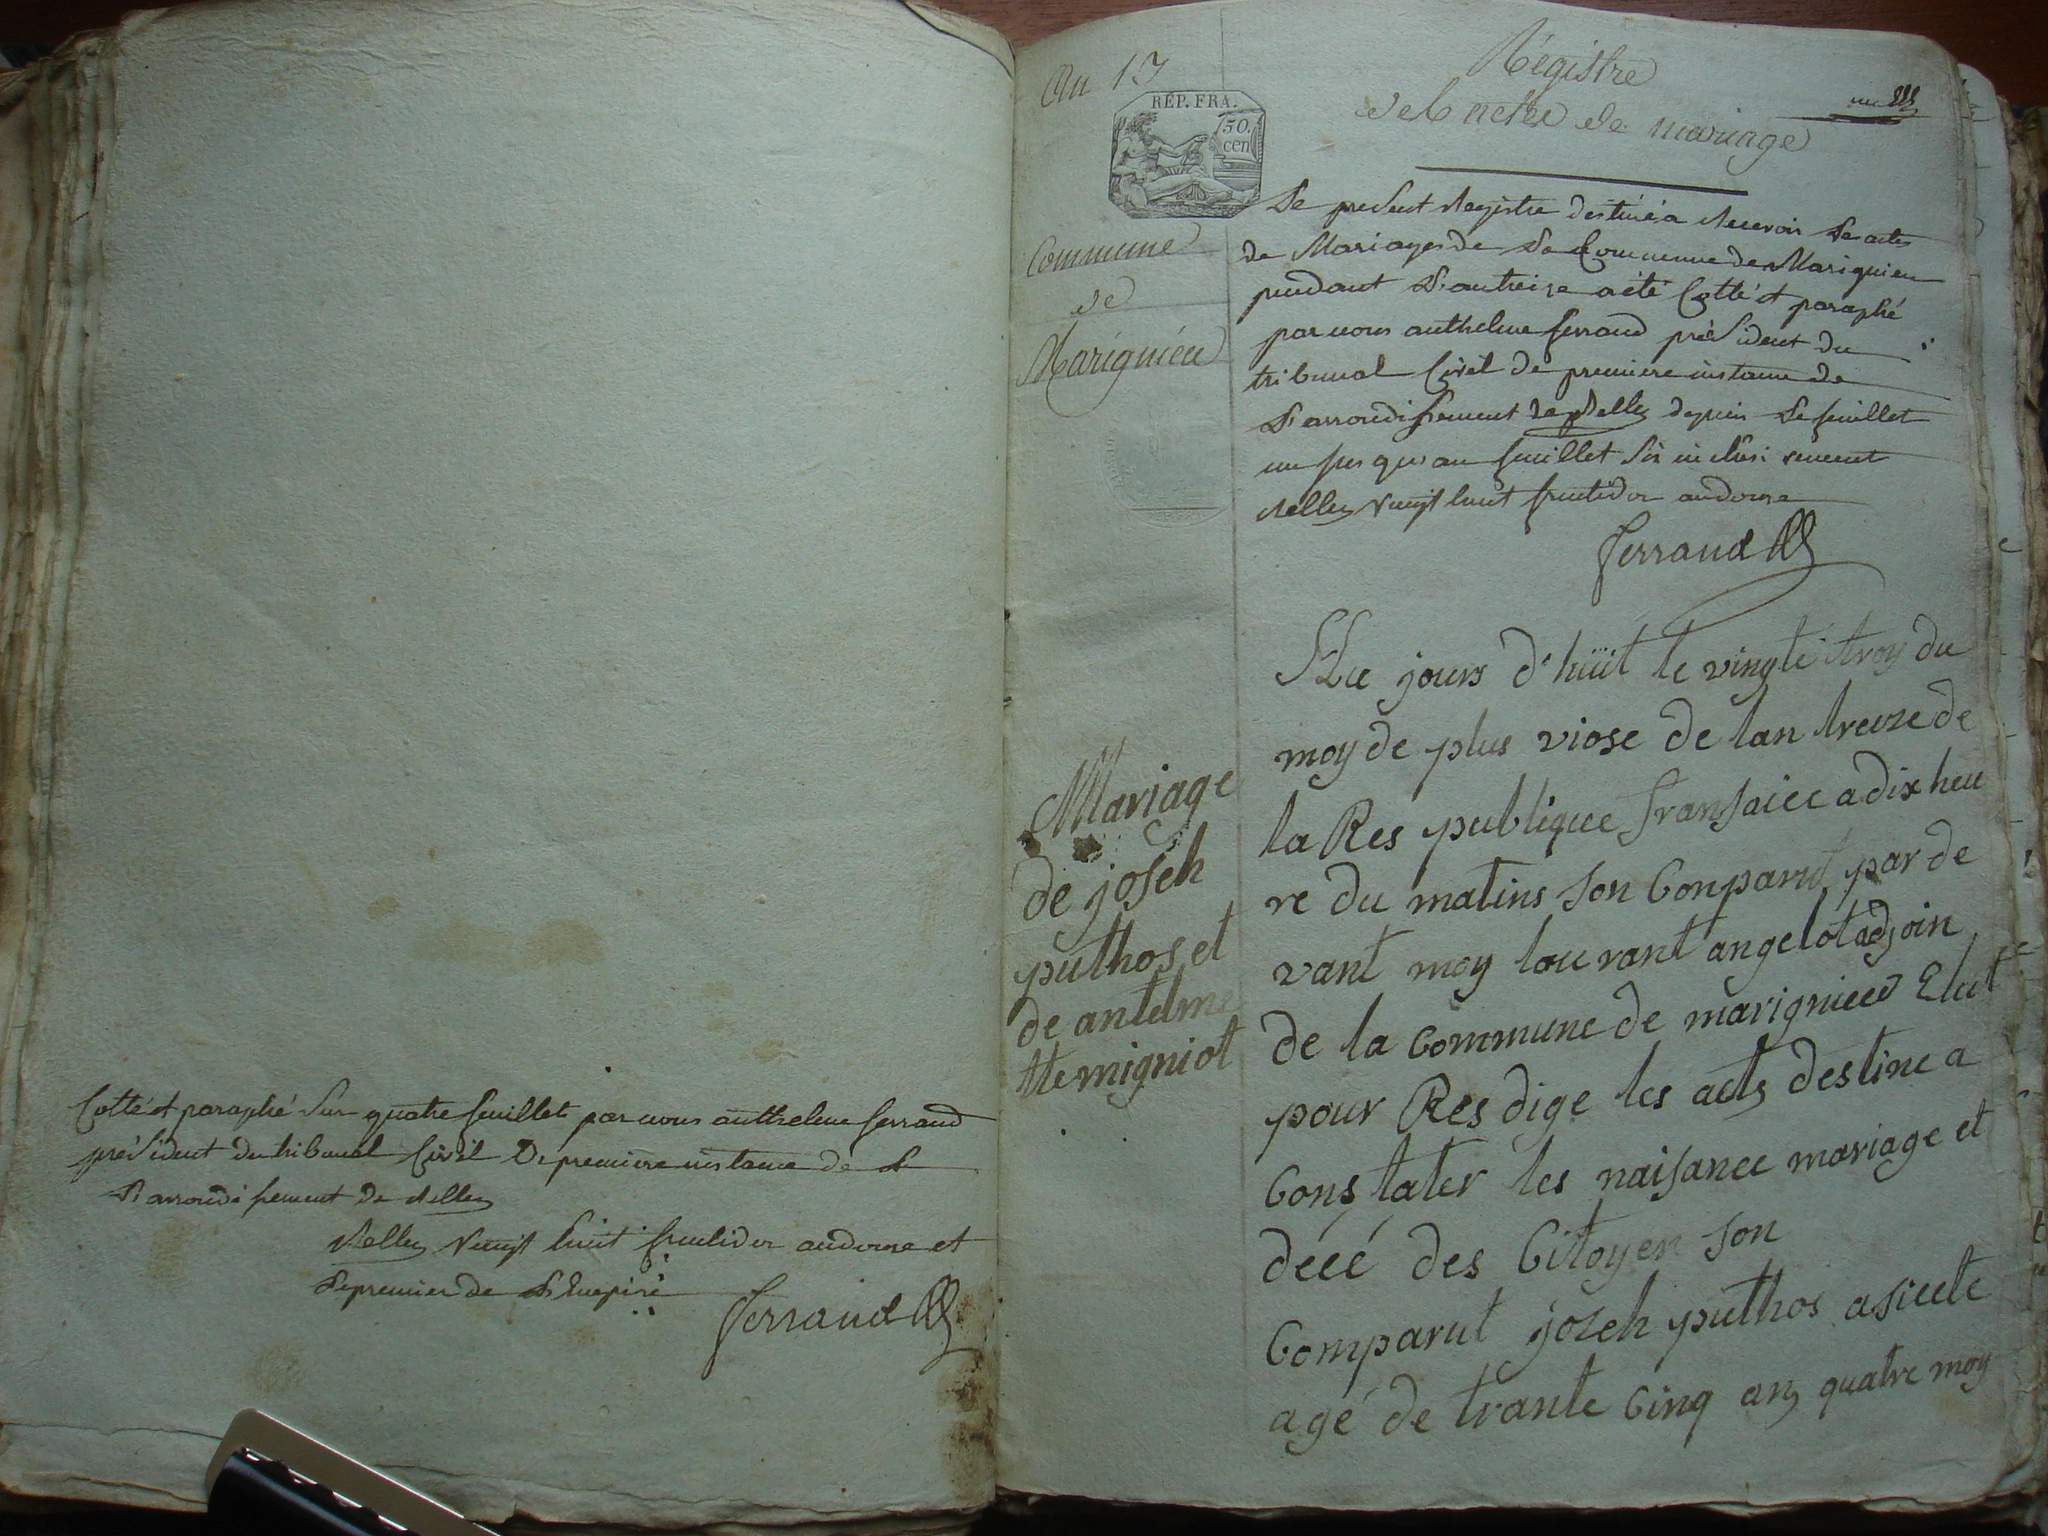 Cotté et paraphé sur quatre feuillets par nous anthelme ferrand
président du tribunal Civil De premiere instance de
L'arrondissement de Belley
Belley vingt huit fructidor an douze et
Le premier de L'Empire
ferrand
An 13
REP. FRA.
50.
cen
Commune
de
Marignieu
Mariage
de joseh
puthos et
de antelme
tte migniot
Régistre
des actes de mariage
un
Le present Registre destiné a Recevoir Les actes
de Mariages de La Commune de Marignieu
pendant L'an treize a eté Cotté et paraphé
par nous anthelme ferrand président du
tribunal Civil de premiere instance de
L'arrondissement de Belley depuis Le feuillet
un jusqu'au feuillet six inclusivement
Belley vingt huit fructidor an douze
ferrand
Au jours d'huit le vingte troy du
moy de plus viose de lan treoze de
la Res publique fransaiee a dix heu
re du matins son Conparut par de
vant moy lourant angelot adjoin
de la commune de marignieu Elut
pour Res dige les acts destine a
Constater les naisance mariage et
décé des Citoyen son
Comparut joseh puthos asicete
agé de trante Cinq ans quatre moy